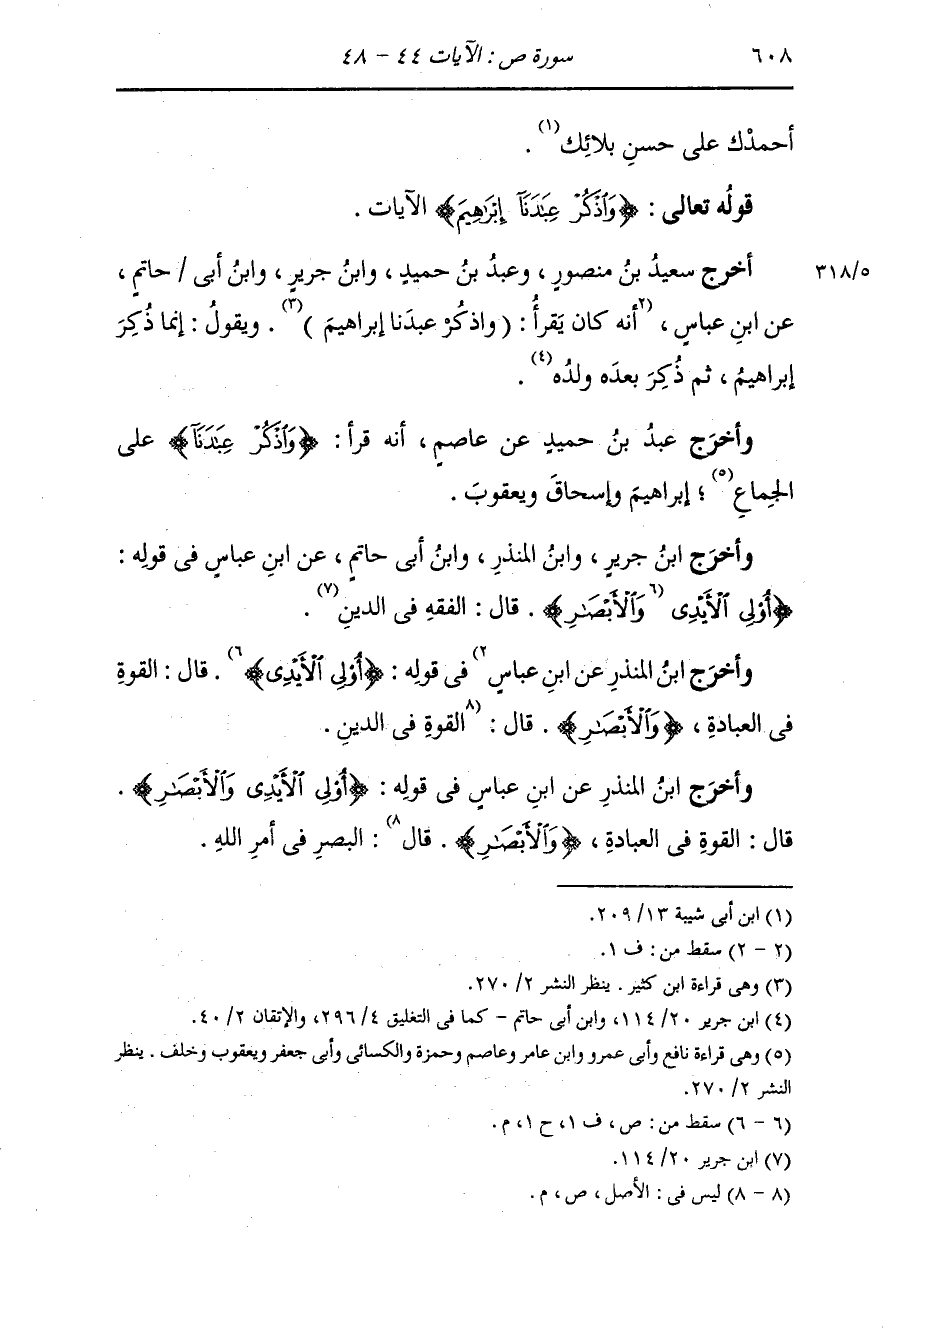 ٦٠٨ سورة ص : الآيات ٤٤ - ٤٨
أحمدْك على حسنِ بلائِك(١) .
قولُه تعالى : ﴿وَٱذْكُرْ عِبَٰدَنَآ إِبْرَٰهِيمَ﴾ الآيات .
٣١٨/٥ أخرج سعيدُ بنُ منصورٍ ، وعبدُ بنُ حميدٍ ، وابنُ جريرٍ ، وابنُ أبى / حاتمٍ ،
عن ابنِ عباسٍ ، (٢أنه كان يَقرأُ : ( واذكُرْ عبدَنا إبراهيمَ )(٣) . ويقولُ : إنما ذُكِرَ
إبراهيمُ ، ثم ذُكِرَ بعدَه ولدُه(٤) .
وأخرَج عبدُ بنُ حميدٍ عن عاصمٍ ، أنه قرأ : ﴿وَٱذْكُرْ عِبَٰدَنَآ﴾ على
الجِماعِ(٥) ؛ إبراهيمَ وإسحاقَ ويعقوبَ .
وأخرَج ابنُ جريرٍ ، وابنُ المنذرِ ، وابنُ أبى حاتمٍ ، عن ابنِ عباسٍ فى قولِه :
﴿أُوْلِى ٱلْأَيْدِى (٦وَٱلْأَبْصَٰرِ﴾ . قال : الفقهِ فى الدينِ(٧) .
وأخرَج ابنُ المنذرِ عن ابنِ عباسٍ٢) فى قولِه : ﴿أُوْلِى ٱلْأَيْدِى﴾٦) . قال : القوةِ
فى العبادةِ ، ﴿وَٱلْأَبْصَٰرِ﴾ . قال : (٨القوةِ فى الدينِ .
وأخرَج ابنُ المنذرِ عن ابنِ عباسٍ فى قولِه : ﴿أُوْلِى ٱلْأَيْدِى وَٱلْأَبْصَٰرِ﴾ .
قال : القوةِ فى العبادةِ ، ﴿وَٱلْأَبْصَٰرِ﴾ . قال٨) : البصرِ فى أمرِ اللهِ .
(١) ابن أبى شيبة ١٣/ ٢٠٩.
(٢ - ٢) سقط من : ف ١.
(٣) وهى قراءة ابن كثير . ينظر النشر ٢/ ٢٧٠.
(٤) ابن جرير ٢٠/ ١١٤، وابن أبى حاتم - كما فى التغليق ٤/ ٢٩٦، والإتقان ٢/ ٤٠.
(٥) وهى قراءة نافع وأبى عمرو وابن عامر وعاصم وحمزة والكسائى وأبى جعفر ويعقوب وخلف . ينظر
النشر ٢/ ٢٧٠.
(٦ - ٦) سقط من : ص ، ف ١، ح ١، م .
(٧) ابن جرير ٢٠/ ١١٤.
(٨ - ٨) ليس فى : الأصل ، ص ، م .